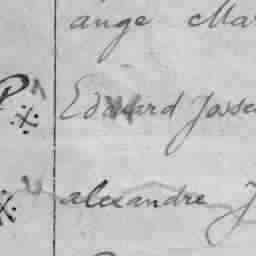 ange Mar
Edouard Josse
alexandre J